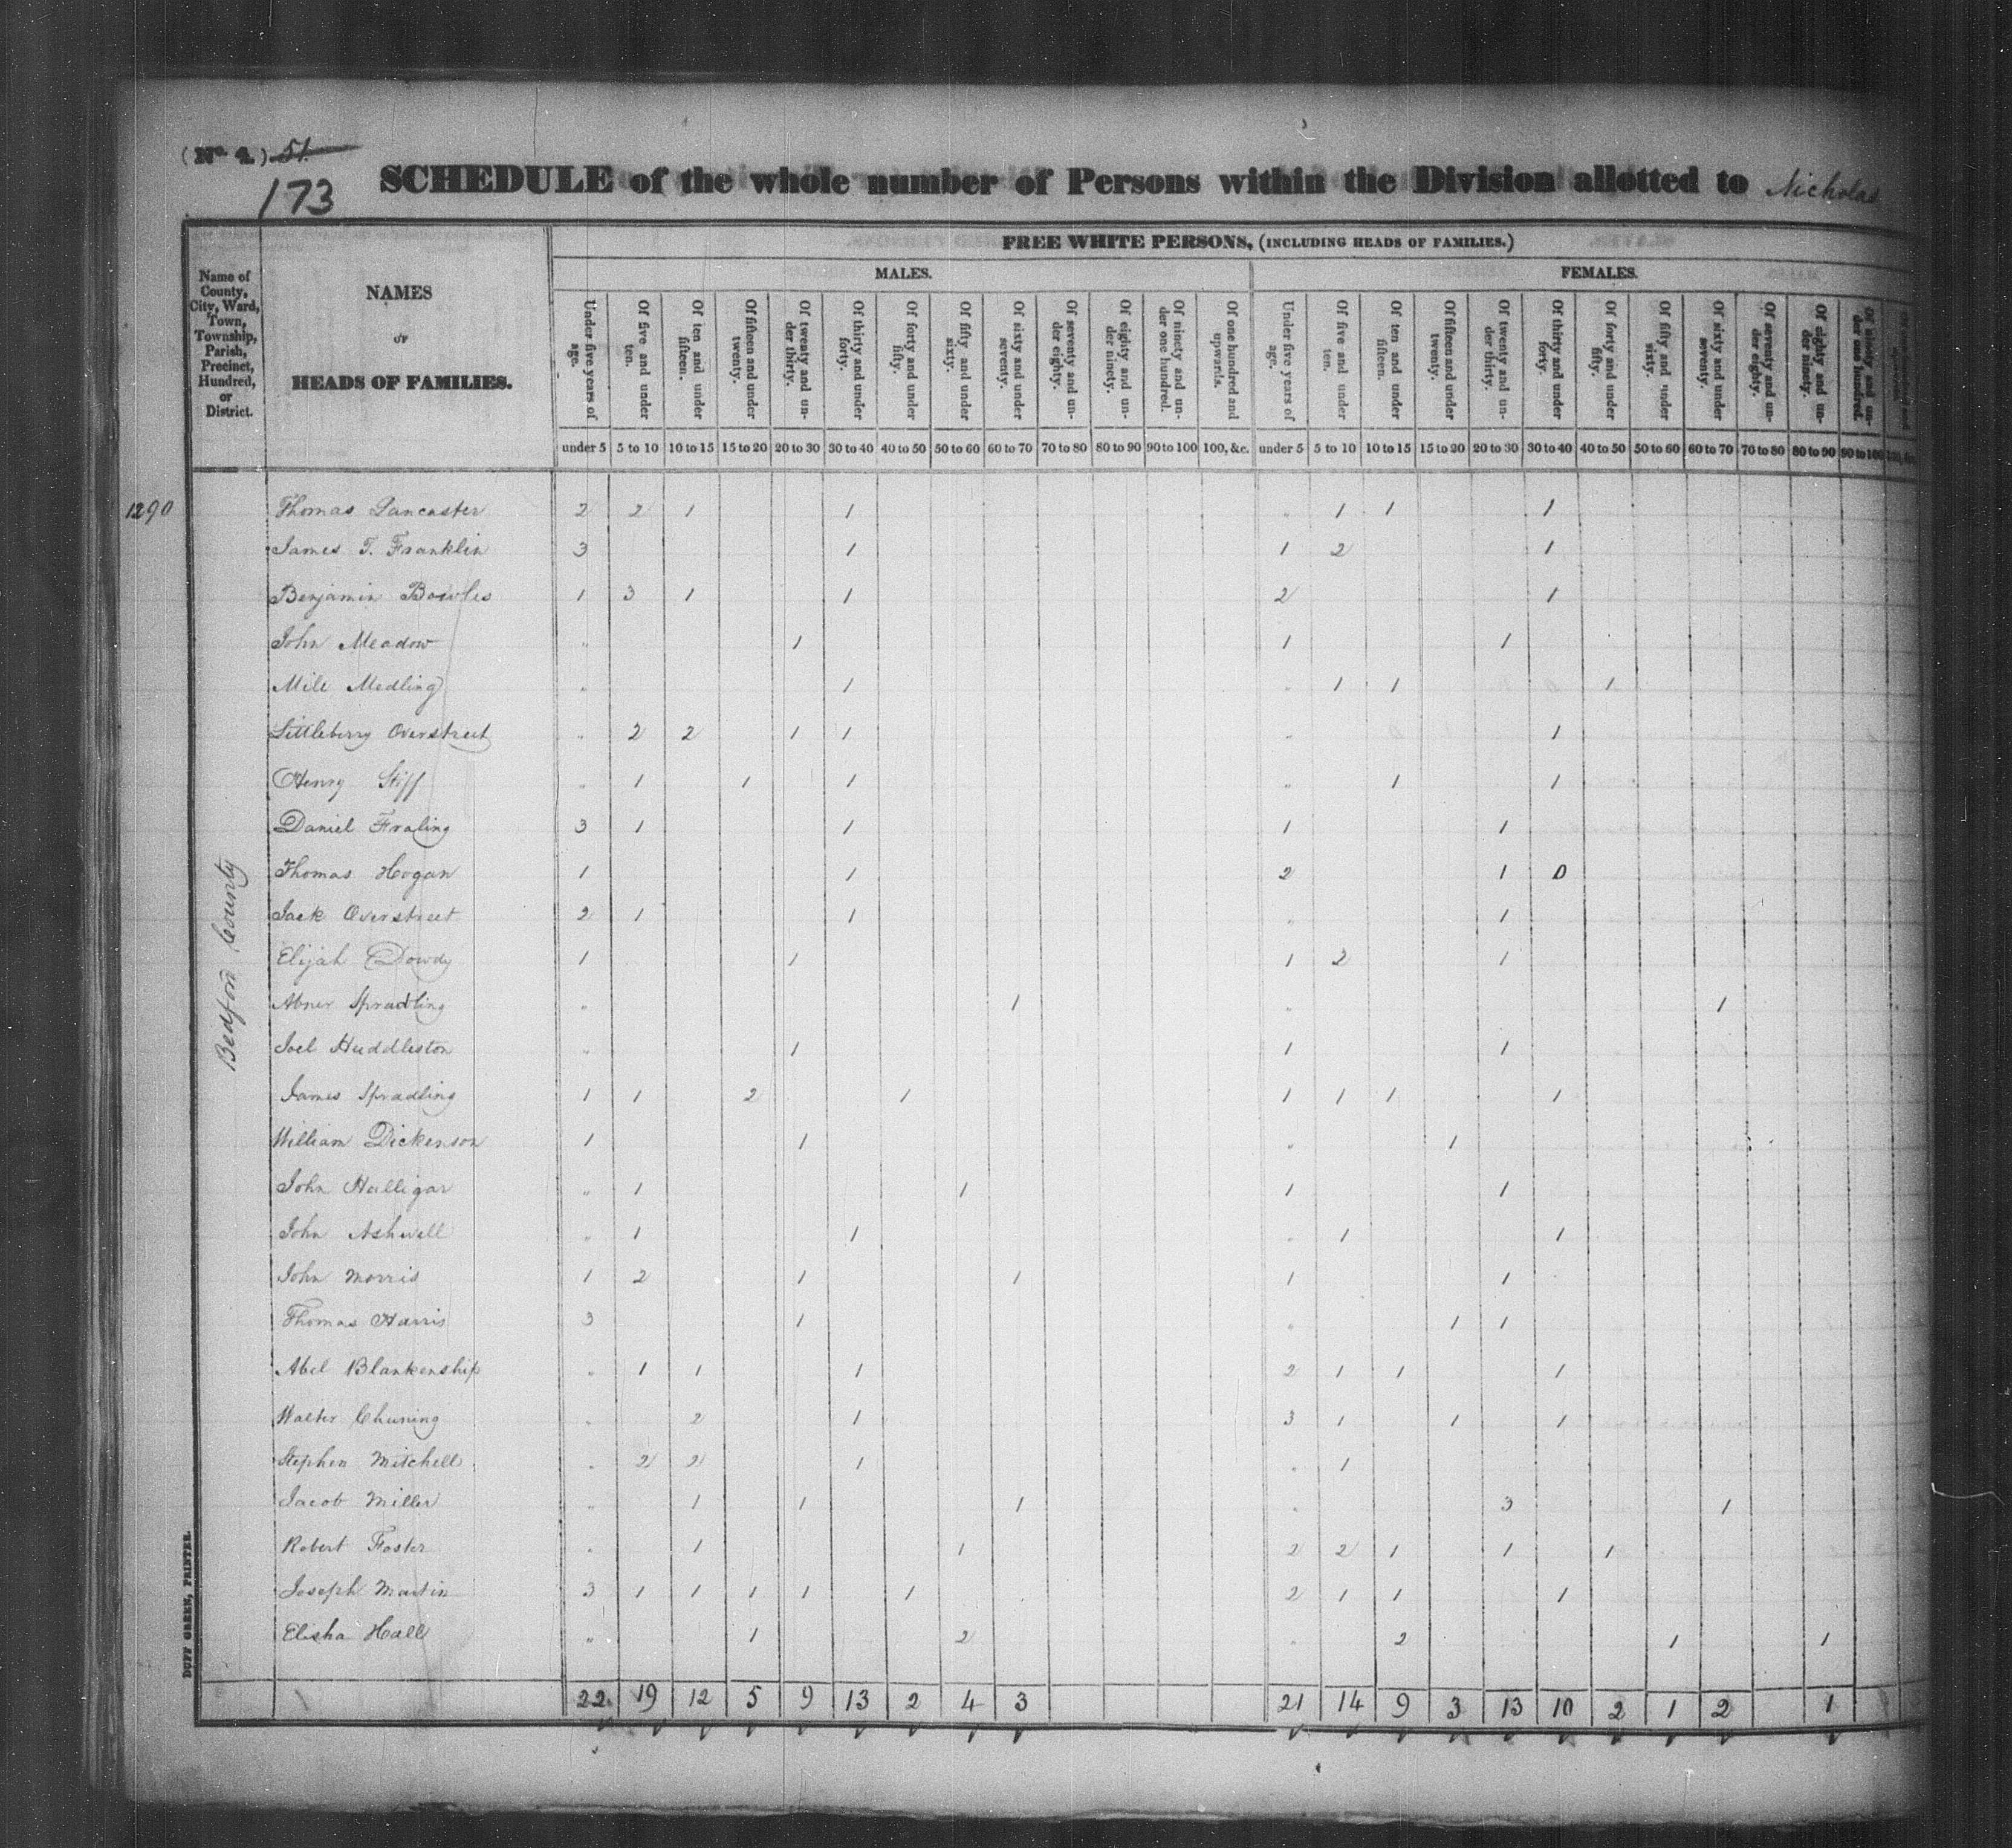 (No. 4.) 51.
173
SCHEDULE of the whole number of Persons within the Division allotted to Nicholas
Name of County, City, Ward, Town, Township, Parish, Precinct, Hundred, or District.
NAMES
OF
HEADS OF FAMILIES.
FREE WHITE PERSONS, (INCLUDING HEADS OF FAMILIES.)
MALES.
FEMALES.
Under five years of age.
Of five and under ten.
Of ten and under fifteen.
Of fifteen and under twenty.
Of twenty and under thirty.
Of thirty and under forty.
Of forty and under fifty.
Of fifty and under sixty.
Of sixty and under seventy.
Of seventy and under eighty.
Of eighty and under ninety.
Of ninety and under one hundred.
Of one hundred and upwards.
Under five years of age.
Of five and under ten.
Of ten and under fifteen.
Of fifteen and under twenty.
Of twenty and under thirty.
Of thirty and under forty.
Of forty and under fifty.
Of fifty and under sixty.
Of sixty and under seventy.
Of seventy and under eighty.
Of eighty and under ninety.
Of ninety and under one hundred.
under 5 5 to 10 10 to 15 15 to 20 20 to 30 30 to 40 40 to 50 50 to 60 60 to 70 70 to 80 80 to 90 90 to 100 100, &c. under 5 5 to 10 10 to 15 15 to 20 20 to 30 30 to 40 40 to 50 50 to 60 60 to 70 70 to 80 80 to 90 90 to 100
1290 Thomas Lancaster 2 2 1 1 " 1 1 1
James T. Franklin 3 1 1 2 1
Benjamin Bowles 1 3 1 1 2 1
John Meadow " 1 1 1
Mile Medling " 1 " 1 1 1
Littleberry Overstreet " 2 2 1 1 " 1
Henry Stiff " 1 1 1 " 1 1
Daniel Fraling 3 1 1 1 1
Thomas Hogan 1 1 2 1 0
Jack Overstreet 2 1 1 " 1
Elijah Dowdy 1 1 1 2 1
Abner Spradling " 1 " 1
Joel Huddleston " 1 1 1
James Spradling 1 1 2 1 1 1 1 1
William Dickenson 1 1 " 1
John Halligar " 1 1 1 1
John Ashwell " 1 1 " 1 1
John Morris 1 2 1 1 1 1
Thomas Harris 3 1 " 1 1
Abel Blankenship " 1 1 1 2 1 1 1
Walter Chuning " 2 1 3 1 1 1
Stephen Mitchell " 2 2 1 " 1
Jacob Miller " 1 1 1 " 3 1
Robert Foster " 1 1 2 2 1 1 1
Joseph Martin 3 1 1 1 1 1 2 1 1 1
Elisha Hall " 1 2 " 2 1 1
Bedford County
22 19 12 5 9 13 2 4 3 21 14 9 3 13 10 2 1 2 1
DUFF GREEN, PRINTER.